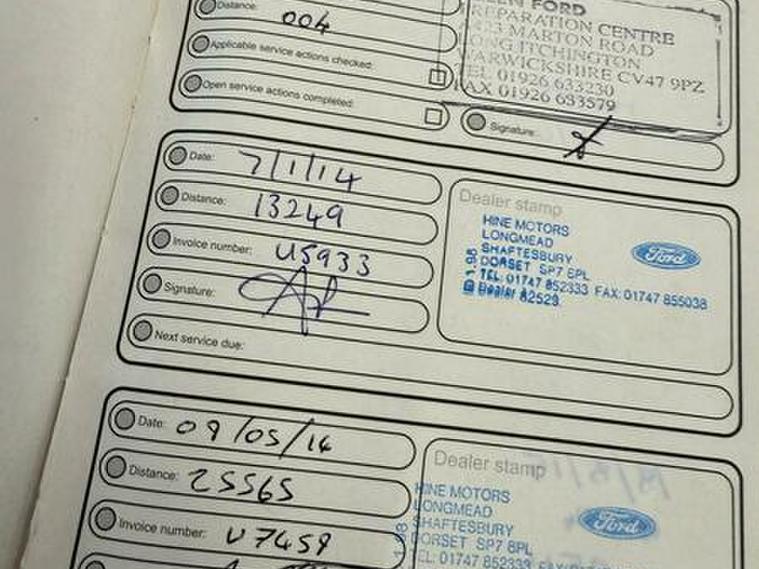 Distance: 004
Applicable service actions checked:
Open service actions completed:
FORD
PREPARATION CENTRE
MARTON ROAD
LONG ITCHINGTON
WARWICKSHIRE CV47 9PZ
TEL 01926 633230
FAX 01926 633579
Signature:
Date: 7/1/14
Distance: 13249
Invoice number: U5933
Signature:
Next service due:
Dealer stamp
HINE MOTORS
LONGMEAD
SHAFTESBURY
DORSET SP7 8PL
TEL: 01747 852333 FAX: 01747 855038
Dealer 82529
Ford
Date: 09/05/14
Distance: 25565
Invoice number: U7459
Dealer stamp
HINE MOTORS
LONGMEAD
SHAFTESBURY
DORSET SP7 8PL
TEL: 01747 852333
Ford